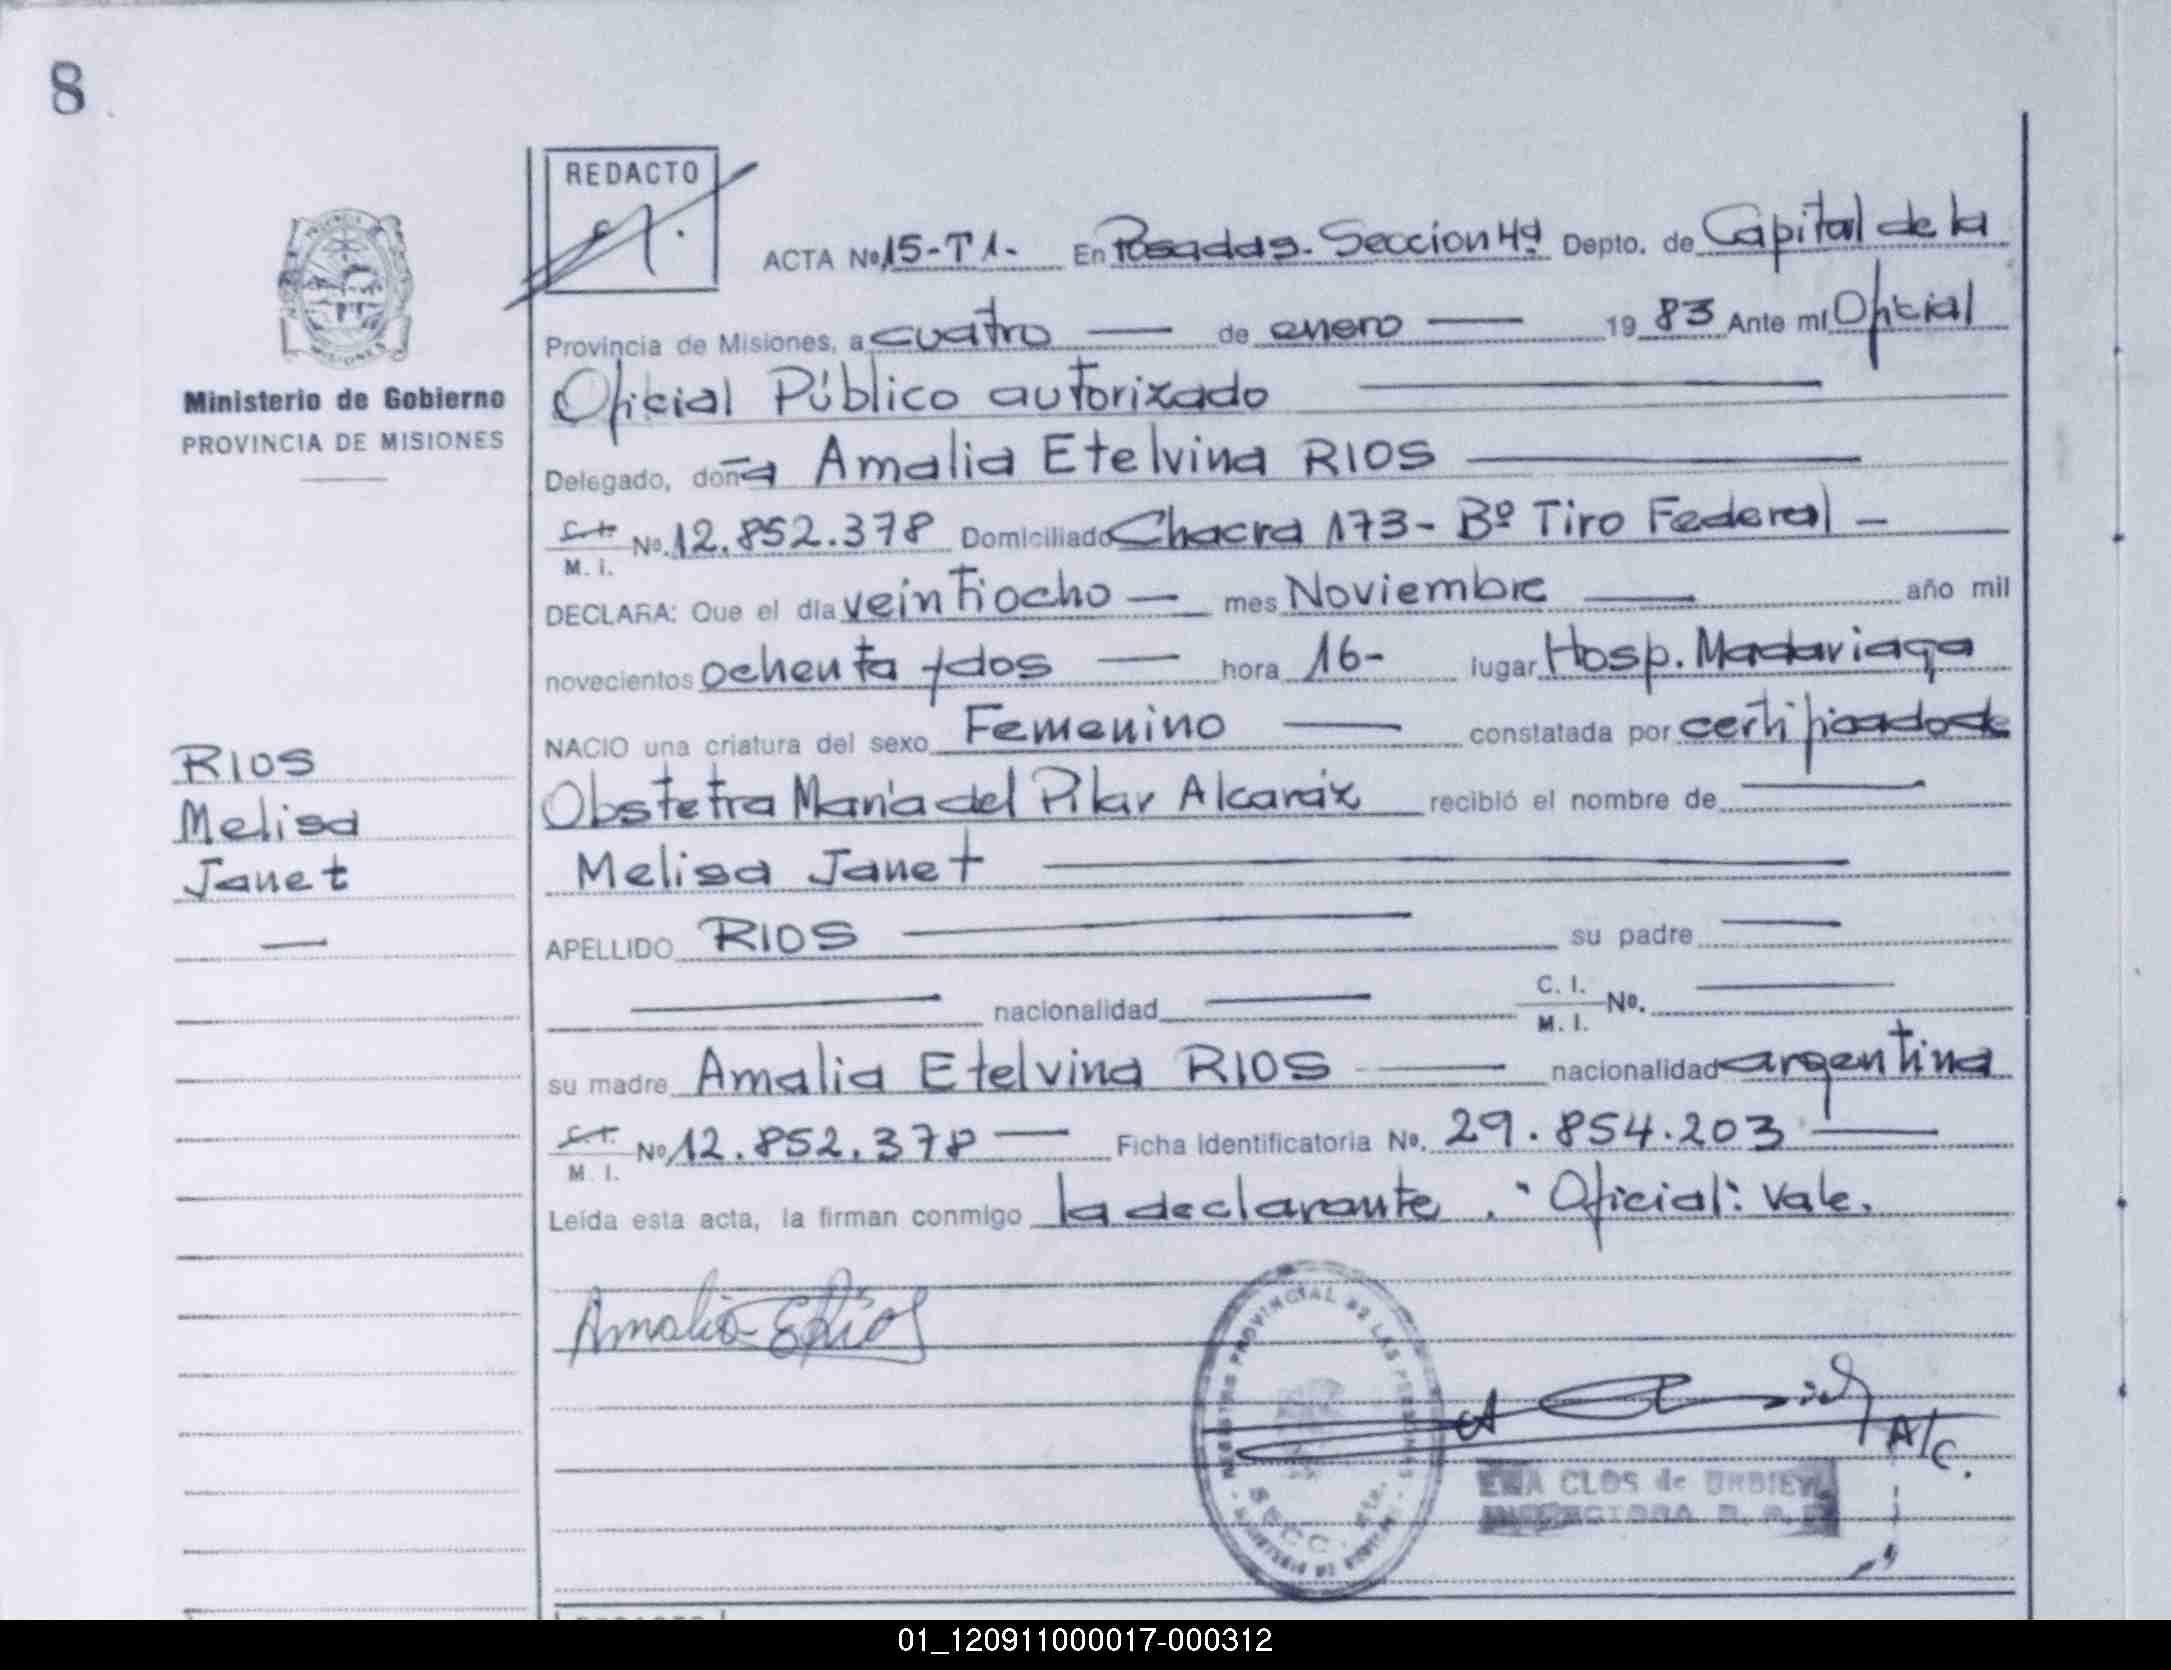 8
REDACTO
ACTA Nº 15-T1- En Posadas. Seccion 4ª Depto. de Capital de la
Provincia de Misiones, a cuatro de enero 1983 Ante mí Oficial
Ministerio de Gobierno
PROVINCIA DE MISIONES
Oficial Público autorizado
Delegado, doña Amalia Etelvina RIOS
C. I. M. I. Nº. 12.852.378 Domiciliado Chacra 173- Bº Tiro Federal -
DECLARA: Que el día veintiocho mes Noviembre año mil
novecientos ochenta y dos hora 16- lugar Hosp. Madariaga
NACIO una criatura del sexo Femenino constatada por certificado de
RIOS
Melisa
Janet
Obstetra María del Pilar Alcaráz recibió el nombre de
Melisa Janet
APELLIDO RIOS su padre
nacionalidad C. I. M. I. Nº.
su madre Amalia Etelvina RIOS nacionalidad argentina
C. I. M. I. Nº 12.852.378 Ficha Identificatoria Nº. 29.854.203
Leída esta acta, la firman conmigo la declarante. "Oficial": Vale.
Amalia E Rios
REGISTRO PROVINCIAL DE LAS PERSONAS
SECC.
A/C.
CLOS de URBIETA
INSPECTORA R. P.
01_120911000017-000312